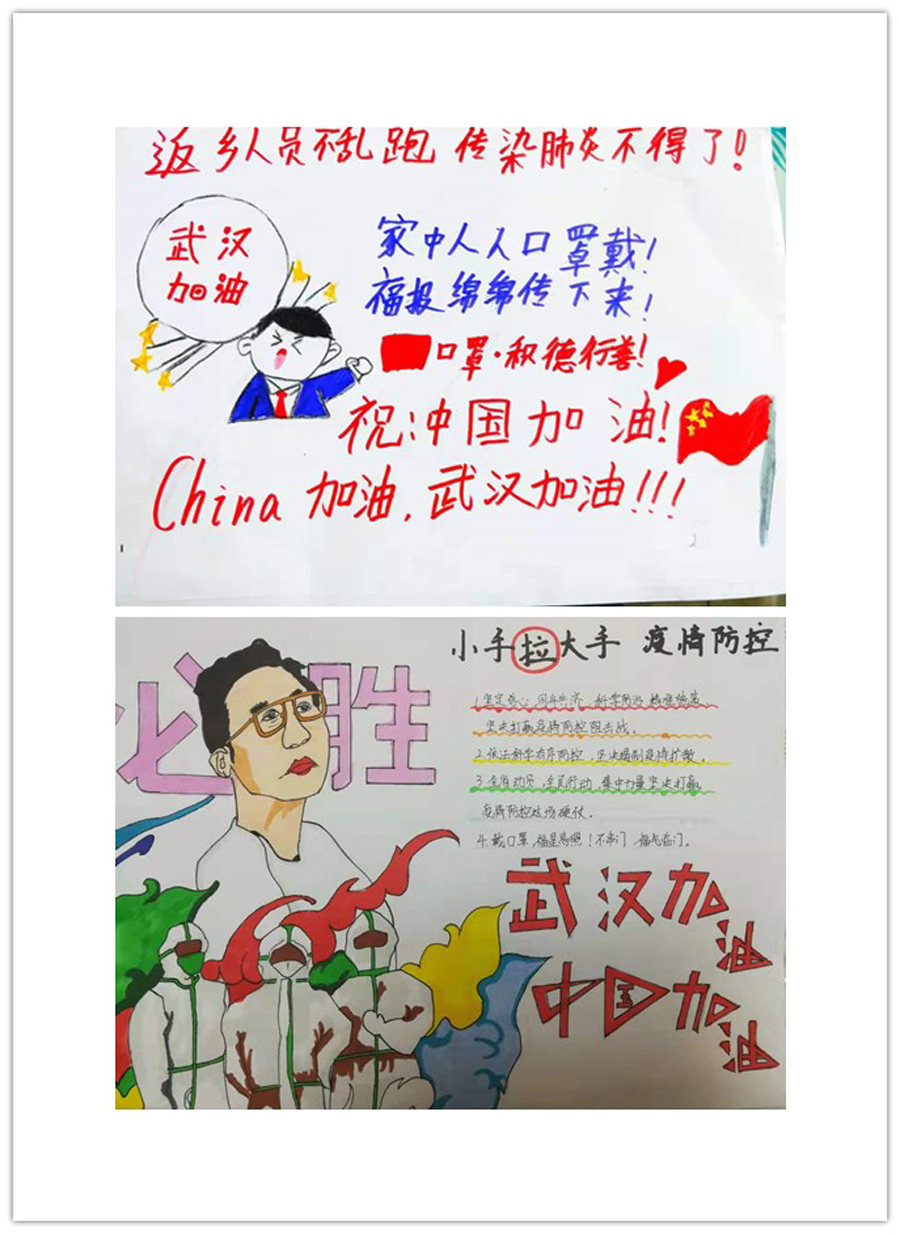 返乡人员不乱跑 传染肺炎不得了!
武汉
加油
家中人人口罩戴!
福报绵绵传下来!
口罩·积德行善!
祝:中国加油!
China 加油,武汉加油!!!
必胜
小手拉大手 疫情防控
1.坚定信心,同舟共济,科学防治,精准施策,
坚决打赢疫情防控阻击战。
2.依法科学有序防控,坚决遏制疫情扩散。
3.全省动员,全民行动,集中力量坚决打赢
疫情防控这场硬仗。
4.戴口罩,福星高照!不串门,福气临门。
武汉加油
中国加油